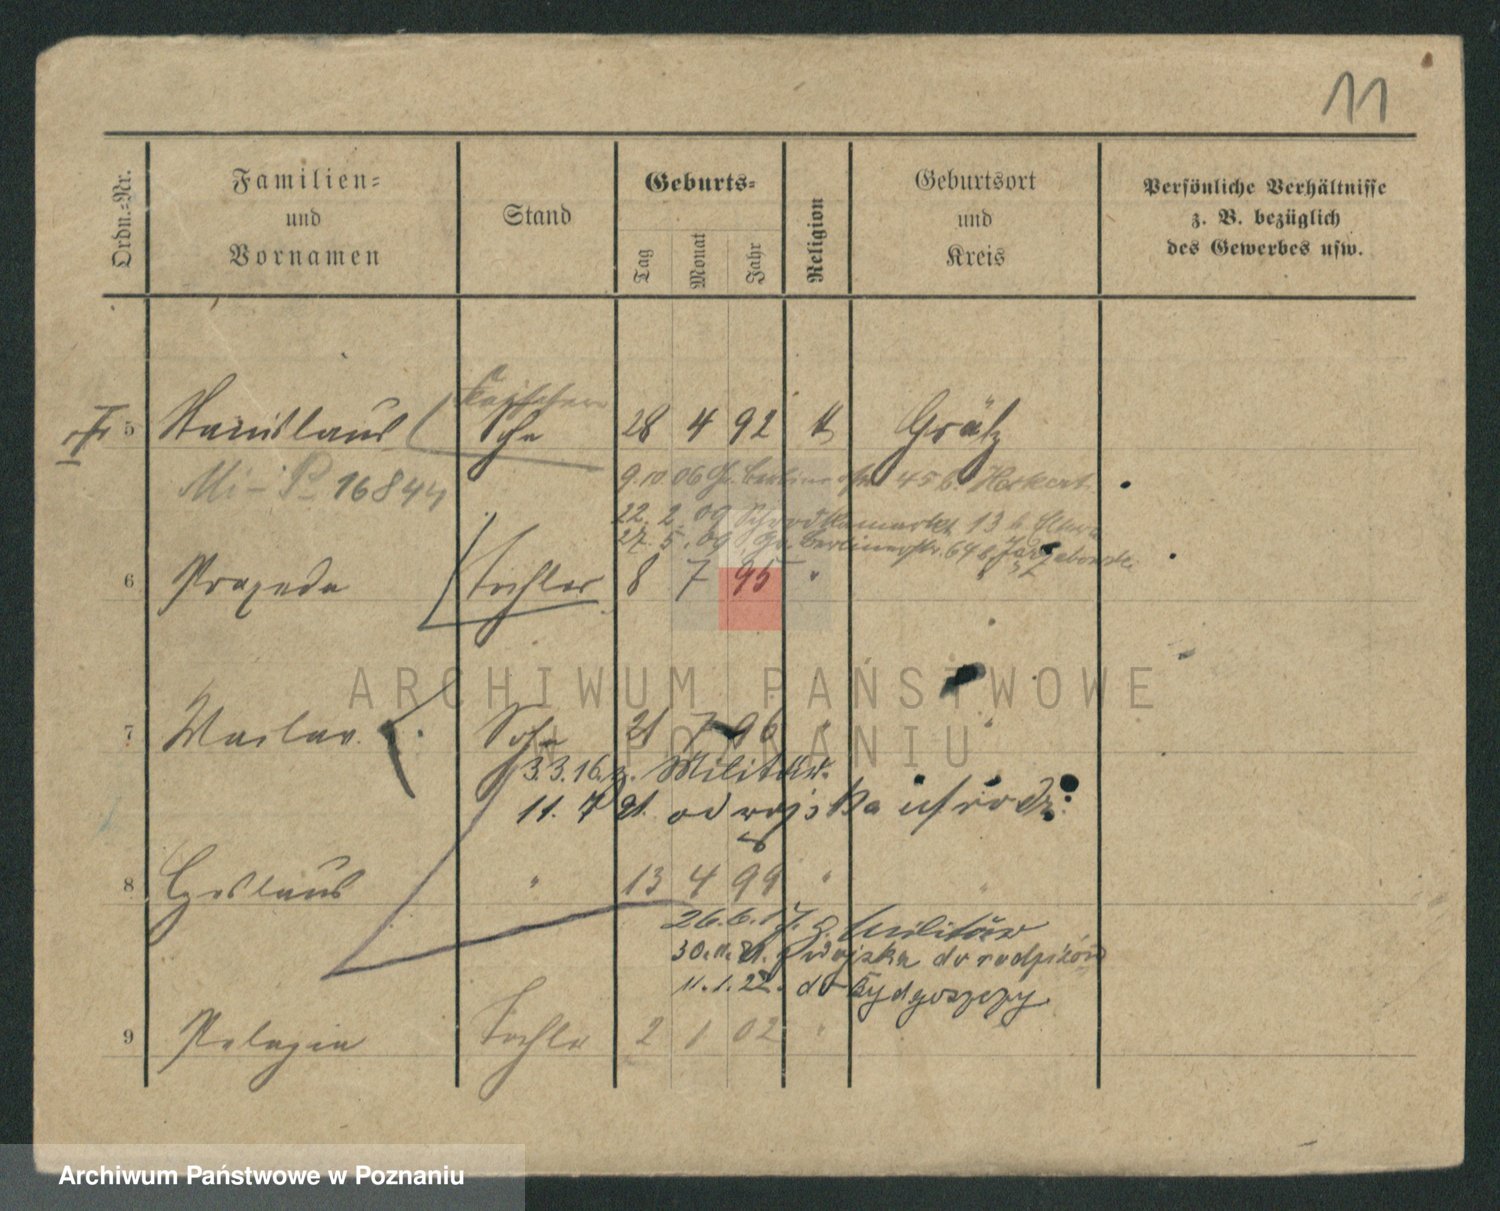 11
Ordn.-Nr.
Familien-
und
Vornamen
Stand
Geburts-
Tag
Monat
Jahr
Religion
Geburtsort
und
Kreis
Persönliche Verhältnisse
z. B. bezüglich
des Gewerbes usw.
5 Stanislaus Sohn 28 4 92 k Grätz
9.10 06 Gr. Berliner str. 45 b.
22. 2. 09 13 b.
27. 5. 09 Gr. Berlinerstr. 64 b.
6 Praxeda Tochter 8 7 95 "
ARCHIWUM PAŃSTWOWE
W POZNANIU
7 Waclav. Sohn 21 7 96 " "
3.3.16. z. Militär.
11. 7 21. od wojska
8 Ceslaus " 13 4 99 " "
26.6.17. z. Militär
30.11.21. wojska do rodziców
11.1.22. do Bydgoszczy
9 Pelagia Tochter 2 1 02 "
Archiwum Państwowe w Poznaniu